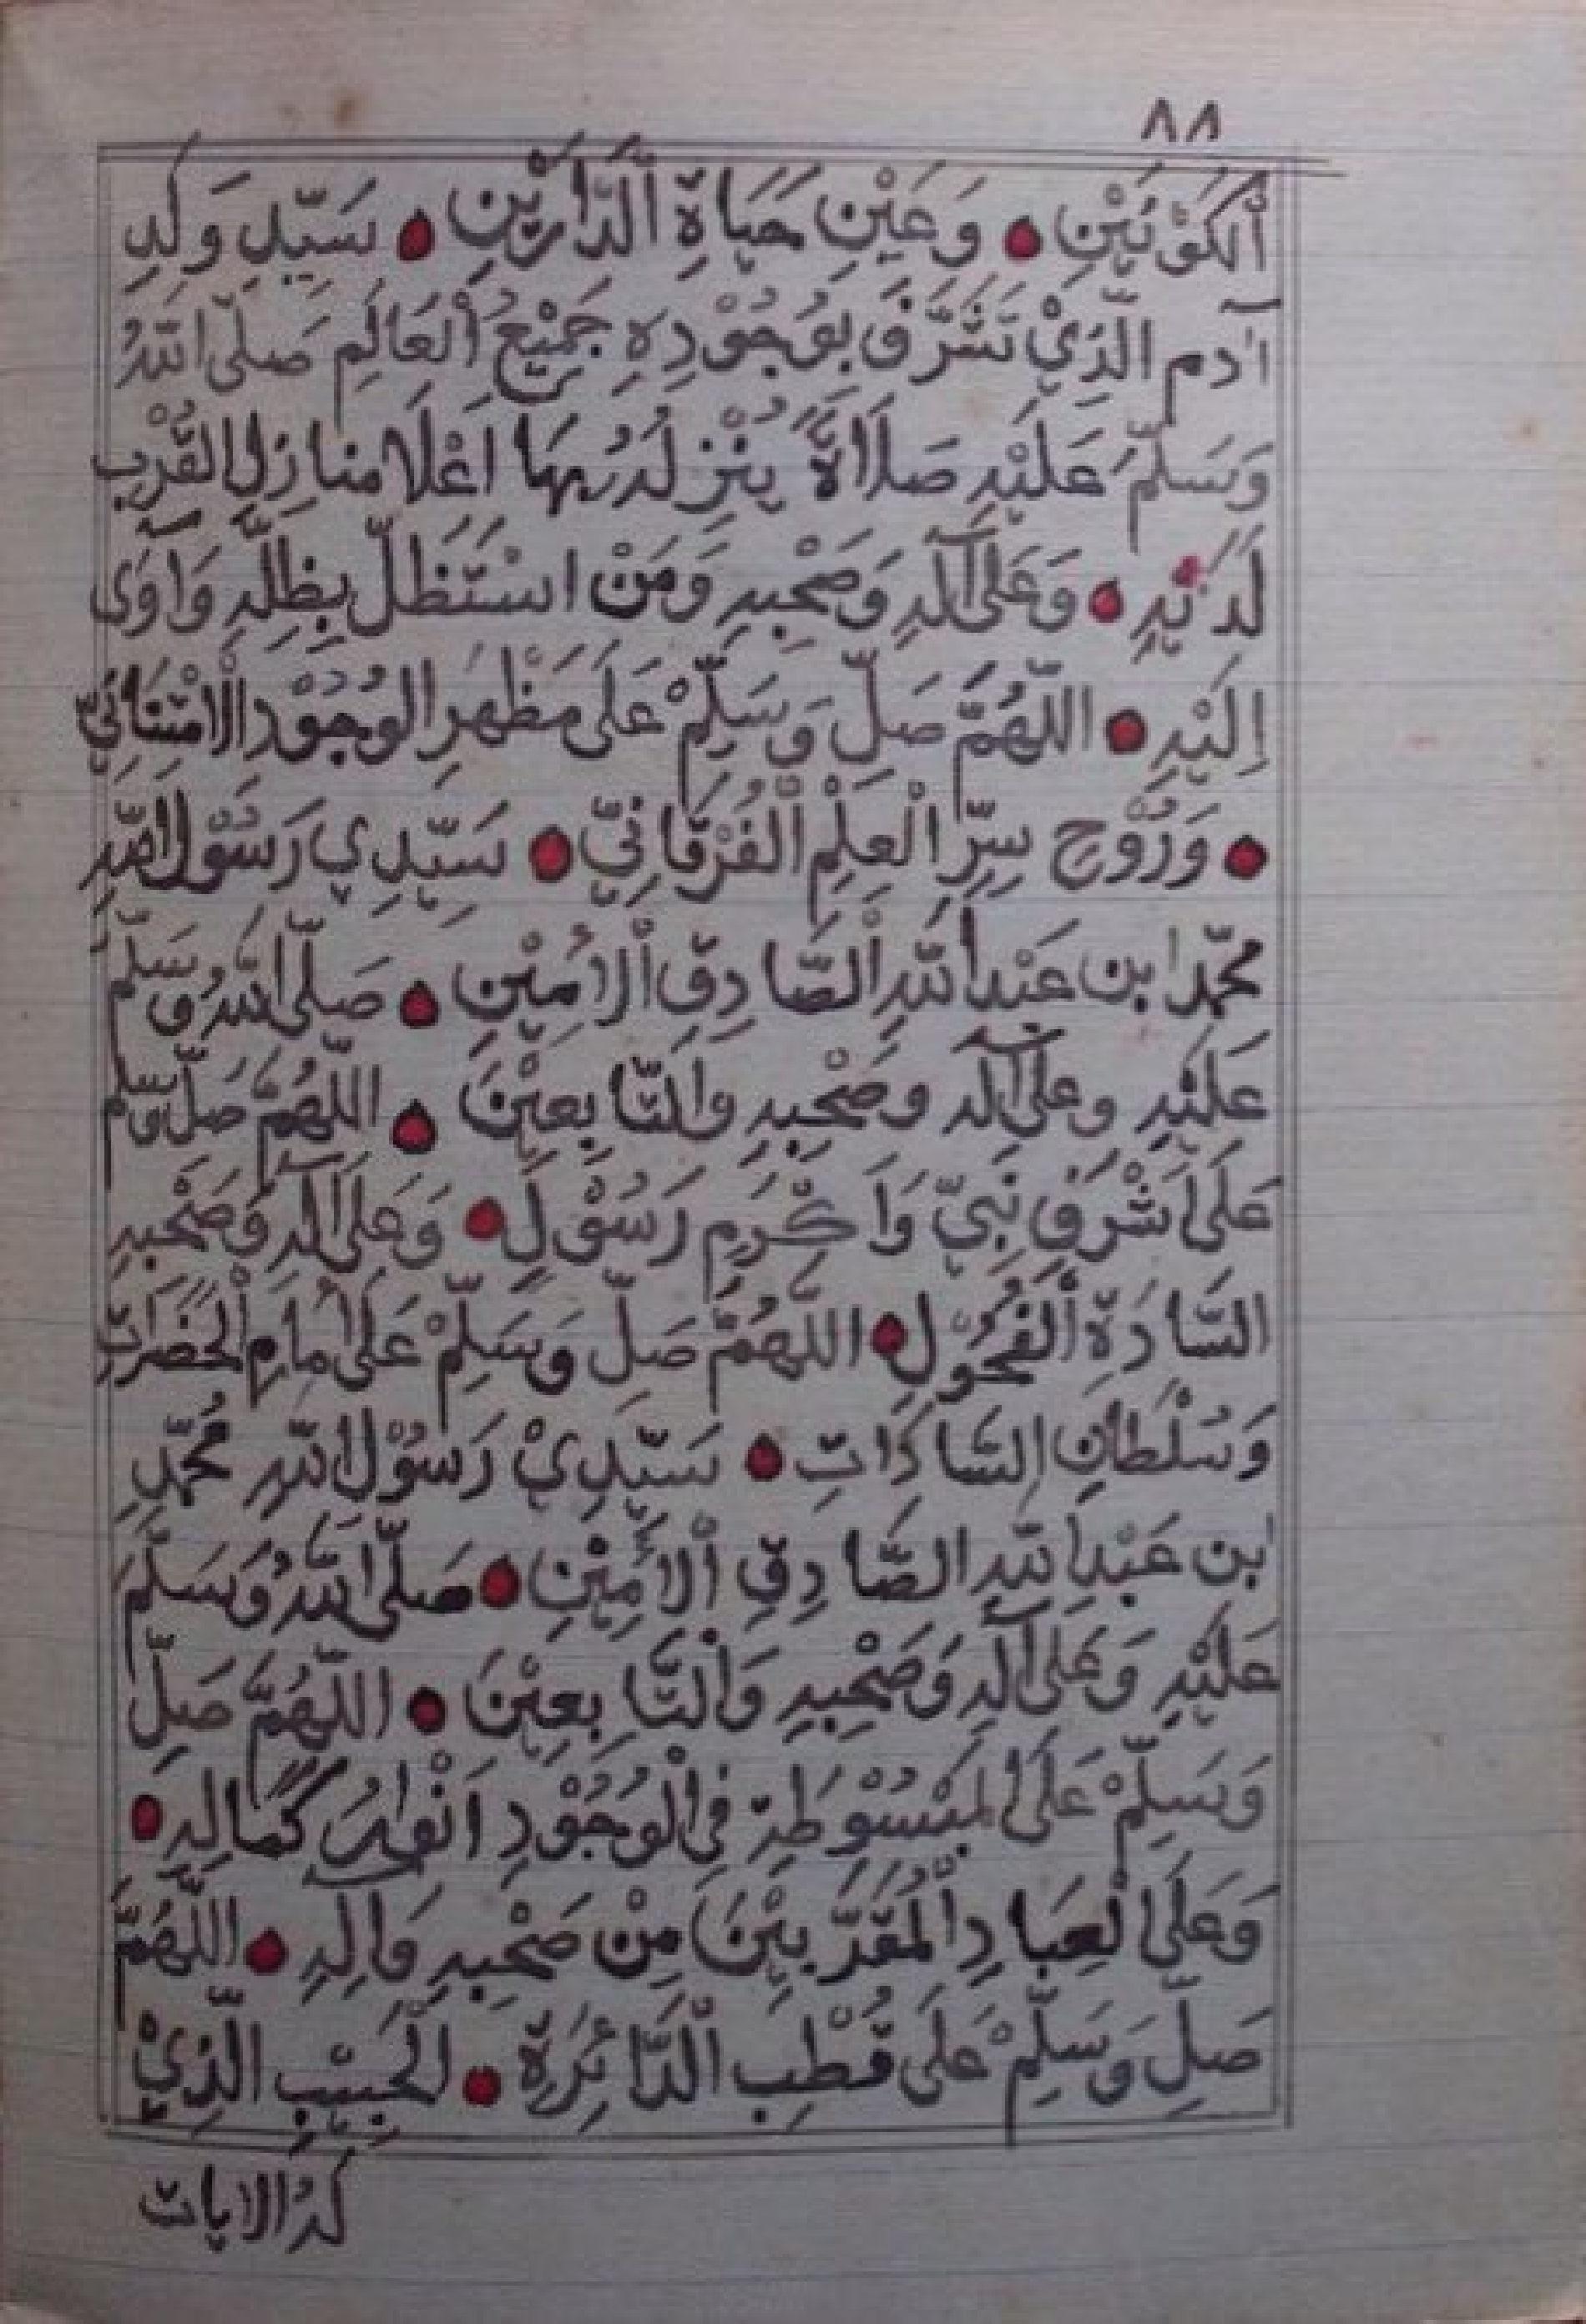 ٨٨
ٱلْكَوْنَيْنِ • وَعَيْنِ حَيَاةِ ٱلدَّارَيْنِ • سَيِّدِ وَلَدِ
آدم الَّذِيْ تَشَرَّفَ بِوُجُوْدِهِ جَمِيْعُ ٱلْعَالَمِ صَلَّى اللّٰهُ
وَسَلَّمَ عَلَيْهِ صَلَاةً يُنْزِلُهُ بِهَا اَعْلَا منازل القُرْبِ
لَدَيْهِ • وَعَلَى آلِهِ وَصَحْبِهِ وَمَنْ اسْتَظَلَّ بِظِلِّهِ وَآوَى
اِلَيْهِ • اللّٰهُمَّ صَلِّ وَسَلِّمْ عَلَى مَظْهَرِ الوُجُوْدِ الْاِمْتِنَانِيِّ
• وَرُوْحِ سِرِّ الْعِلْمِ ٱلْفُرْقَانِيِّ • سَيِّدِي رَسُوْلِ اللّٰهِ
محمّد ابن عَبْدِ اللّٰهِ الصَّادِقِ ٱلْاَمِيْنِ • صَلَّى اللّٰهُ وسَلَّمَ
عَلَيْهِ وعلى آله وصَحْبِهِ والتَّابِعِيْنَ • اللّٰهُمَّ صَلِّ وسلم
عَلَى اَشْرَفِ نَبِيٍّ وَاَكْرَمِ رَسُوْلٍ • وَعَلَى آلِهِ وَصَحْبِهِ
السَّادَةِ ٱلْفُحُوْلِ • اللّٰهُمَّ صَلِّ وَسَلِّمْ عَلَى اِمَامِ ٱلْحَضَرَاتِ
وَسُلْطَانِ السَّادَاتِ • سَيِّدِيْ رَسُوْلِ اللّٰهِ مُحَمَّدِ
ابن عَبْدِ اللّٰهِ الصَّادِقِ ٱلْاَمِيْنِ • صَلَّى اللّٰهُ وَسَلَّمَ
عَلَيْهِ وَعَلَى آلِهِ وَصَحْبِهِ وَالتَّابِعِيْنَ • اللّٰهُمَّ صَلِّ
وَسَلِّمْ عَلَى الْمَبْسُوْطَةِ فِي الْوُجُوْدِ اَنْوَارُ كَمَالِهِ •
وَعَلَى الْعِبَادِ الْمُقَرَّبِيْنَ مِنْ صَحْبِهِ وَالِهِ • اللّٰهُمَّ
صَلِّ وَسَلِّمْ عَلَى قُطْبِ ٱلدَّائِرَةِ • الْحَبِيْبِ الَّذِيْ
لَهُ الايات